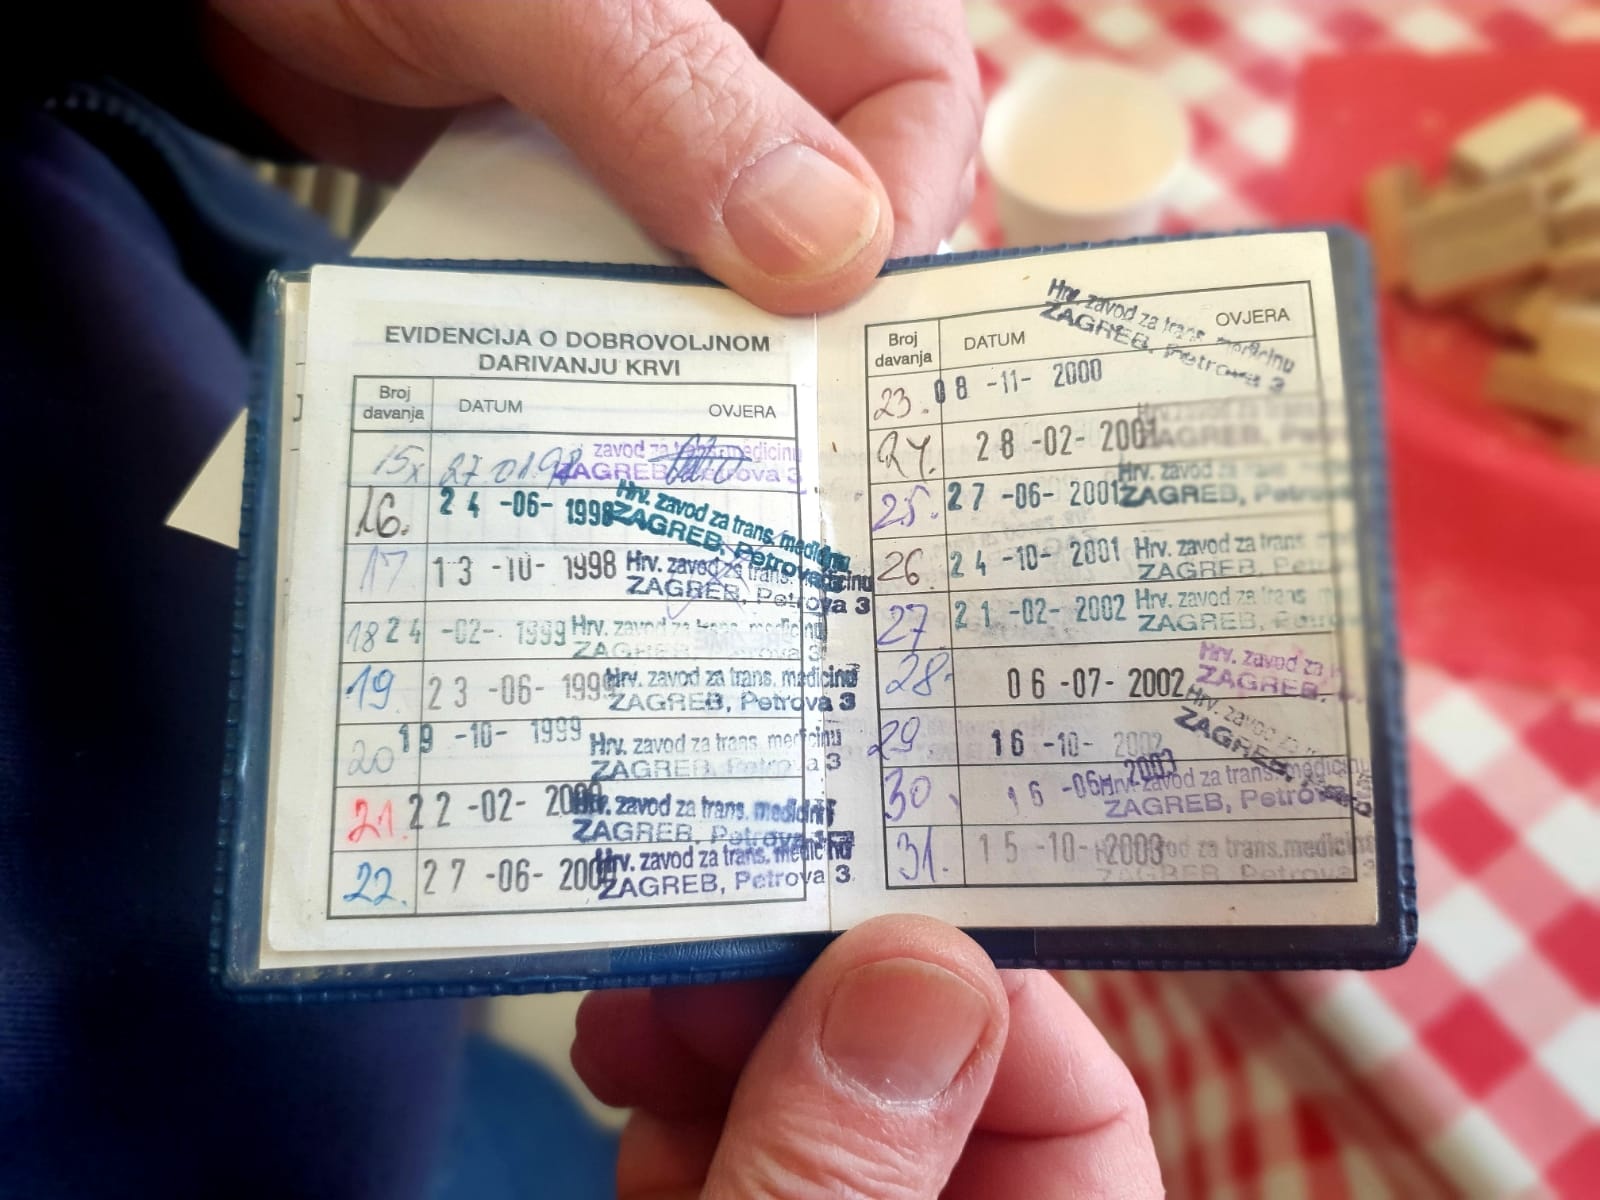 EVIDENCIJA O DOBROVOLJNOM
DARIVANJU KRVI
Broj davanja DATUM OVJERA
15x 27 01.98 zavod za trans. medicinu
ZAGREB, Petrova 3
16. 24 -06- 1998 Hrv. zavod za trans. medicinu
ZAGREB, Petrova
17 13 -10- 1998 Hrv. zavod za trans. medicinu
ZAGREB, Petrova 3
18 24 -02- 1999 Hrv. zavod za trans. medicinu
ZAGREB, Petrova 3
19. 23 -06- 1999 Hrv. zavod za trans. medicinu
ZAGREB, Petrova 3
20 19 -10- 1999 Hrv. zavod za trans. medicinu
ZAGREB, Petrova 3
21. 22 -02- 2000 Hrv. zavod za trans. medicinu
ZAGREB, Petrova
22. 27 -06- 2000 Hrv. zavod za trans. medicinu
ZAGREB, Petrova 3
Broj davanja DATUM OVJERA
Hrv. zavod za trans. medicinu
ZAGREB, Petrova 3
23. 08 -11- 2000
24. 28 -02- 2001 Hrv. zavod za
ZAGREB,
25. 27 -06- 2001 Hrv. zavod za trans
ZAGREB, Petrova
26 24 -10- 2001 Hrv. zavod za trans
ZAGREB,
27 21 -02- 2002 Hrv. zavod za trans
ZAGREB,
28. 06 -07- 2002 Hrv. zavod za
ZAGREB.
29 16 -10- 2002 Hrv. zavod za
ZAGREB,
30. 16 -06- 2003 Hrv. zavod za trans. medicinu
ZAGREB, Petrova
31. 15 -10- 2003 zavod za trans. medicinu